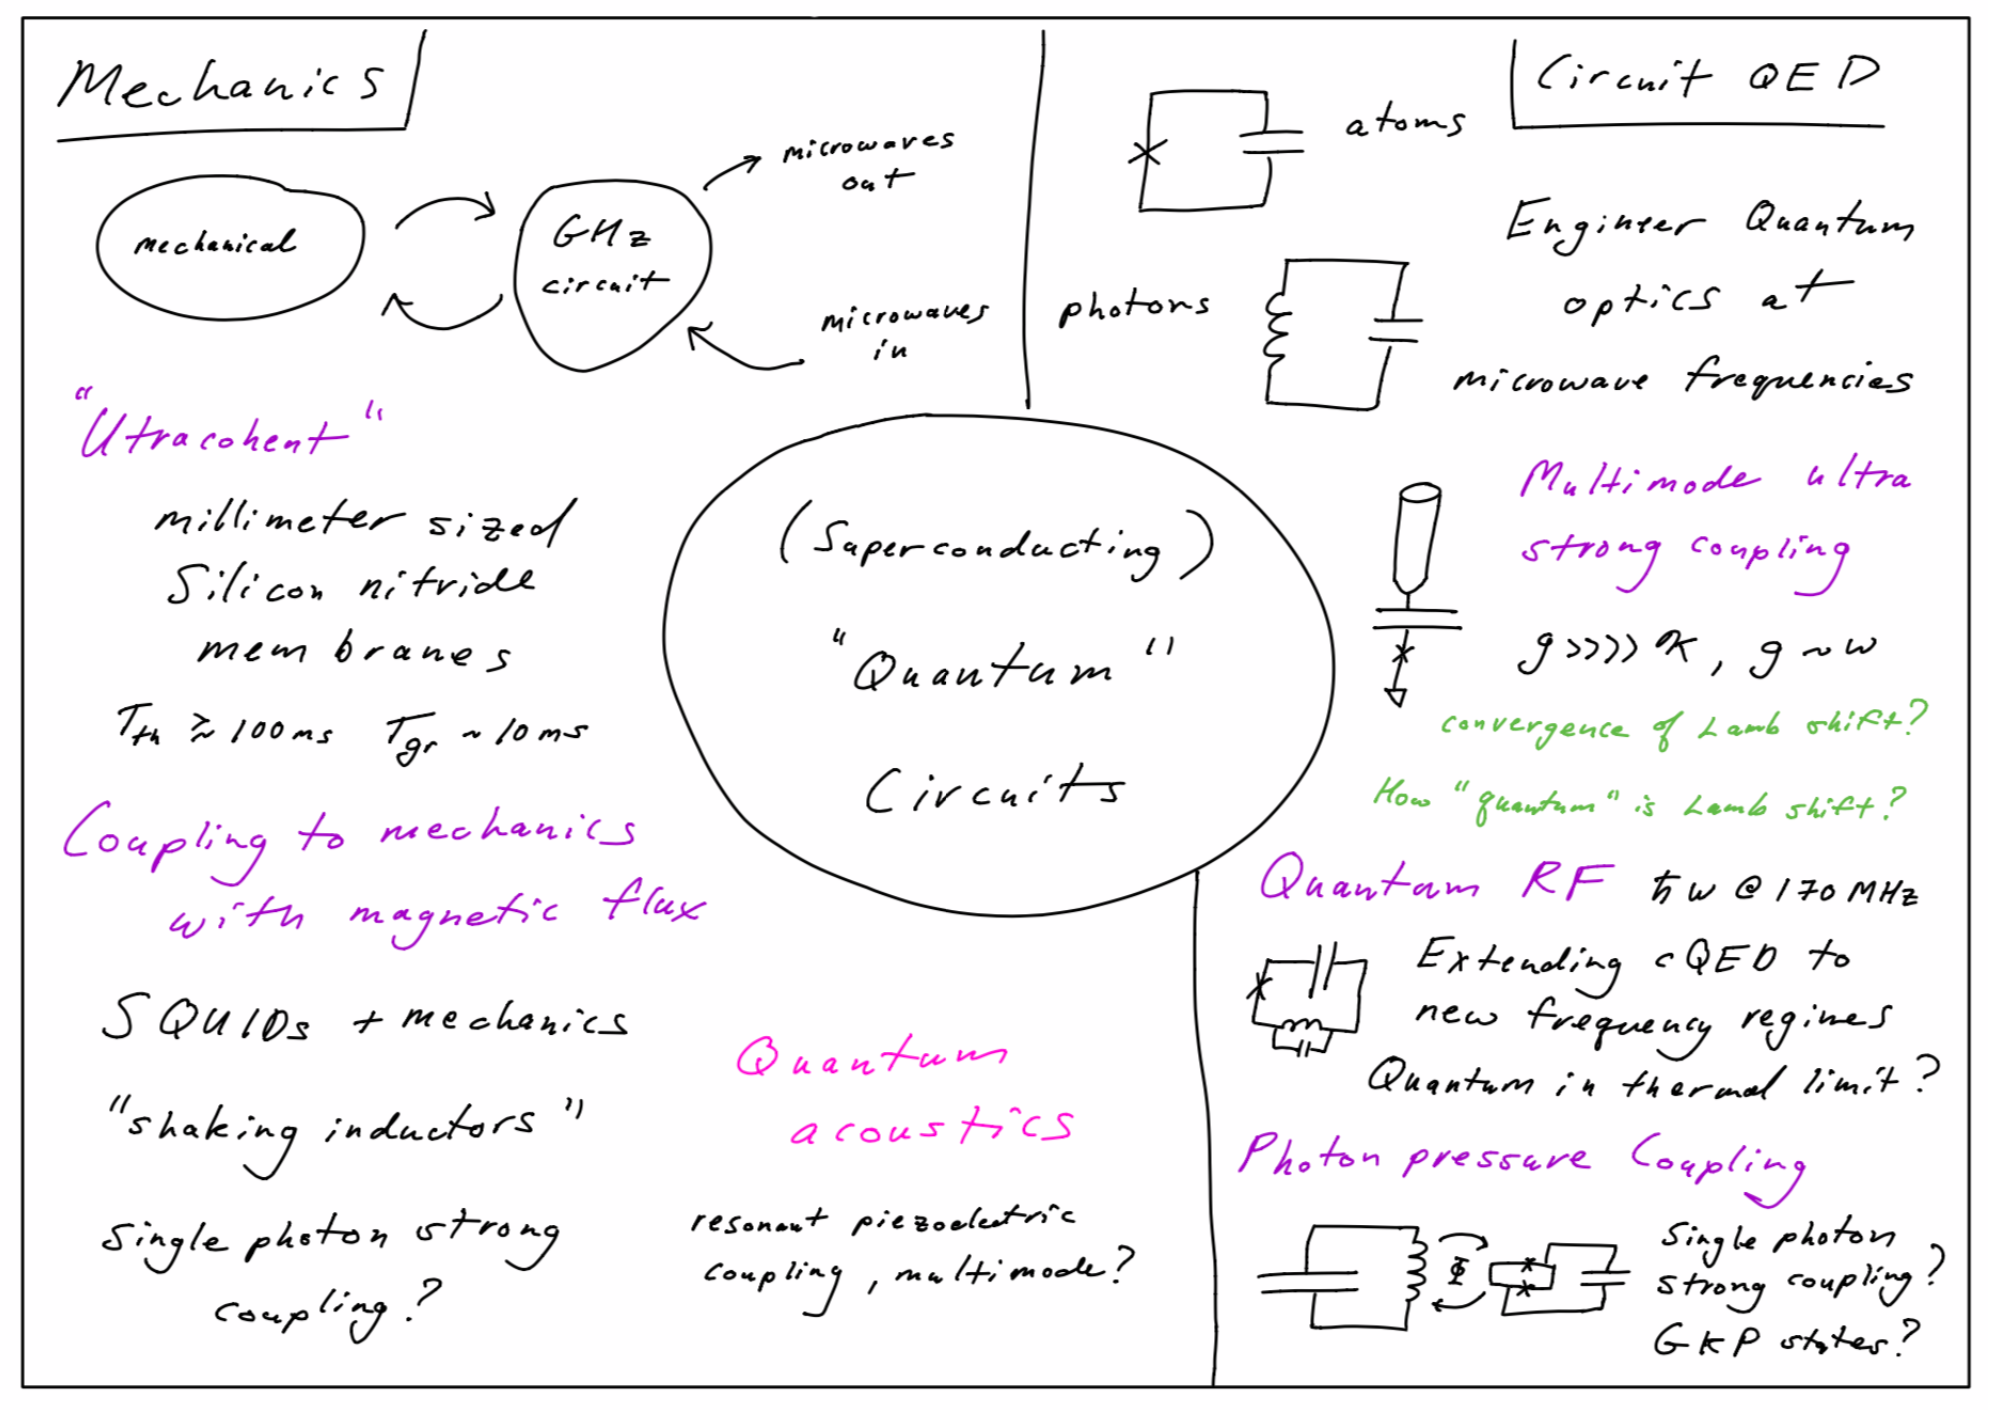 Mechanics
mechanical
GHz
circuit
microwaves
out
microwaves
in
"Utracohent"
millimeter sized
Silicon nitride
membranes
T_th ≳ 100 ms T_gr ~ 10 ms
Coupling to mechanics
with magnetic flux
SQUIDs + mechanics
"shaking inductors"
single photon strong
coupling?
Quantum
acoustics
resonant piezoelectric
coupling, multimode?
(Superconducting)
"Quantum"
Circuits
Circuit QED
atoms
photons
Engineer Quantum
optics at
microwave frequencies
Multimode ultra
strong coupling
g >>>> κ, g ~ ω
convergence of Lamb shift?
How "quantum" is Lamb shift?
Quantum RF ħω @ 170 MHz
Extending cQED to
new frequency regimes
Quantum in thermal limit?
Photon pressure Coupling
Φ
Single photon
strong coupling?
GKP states?